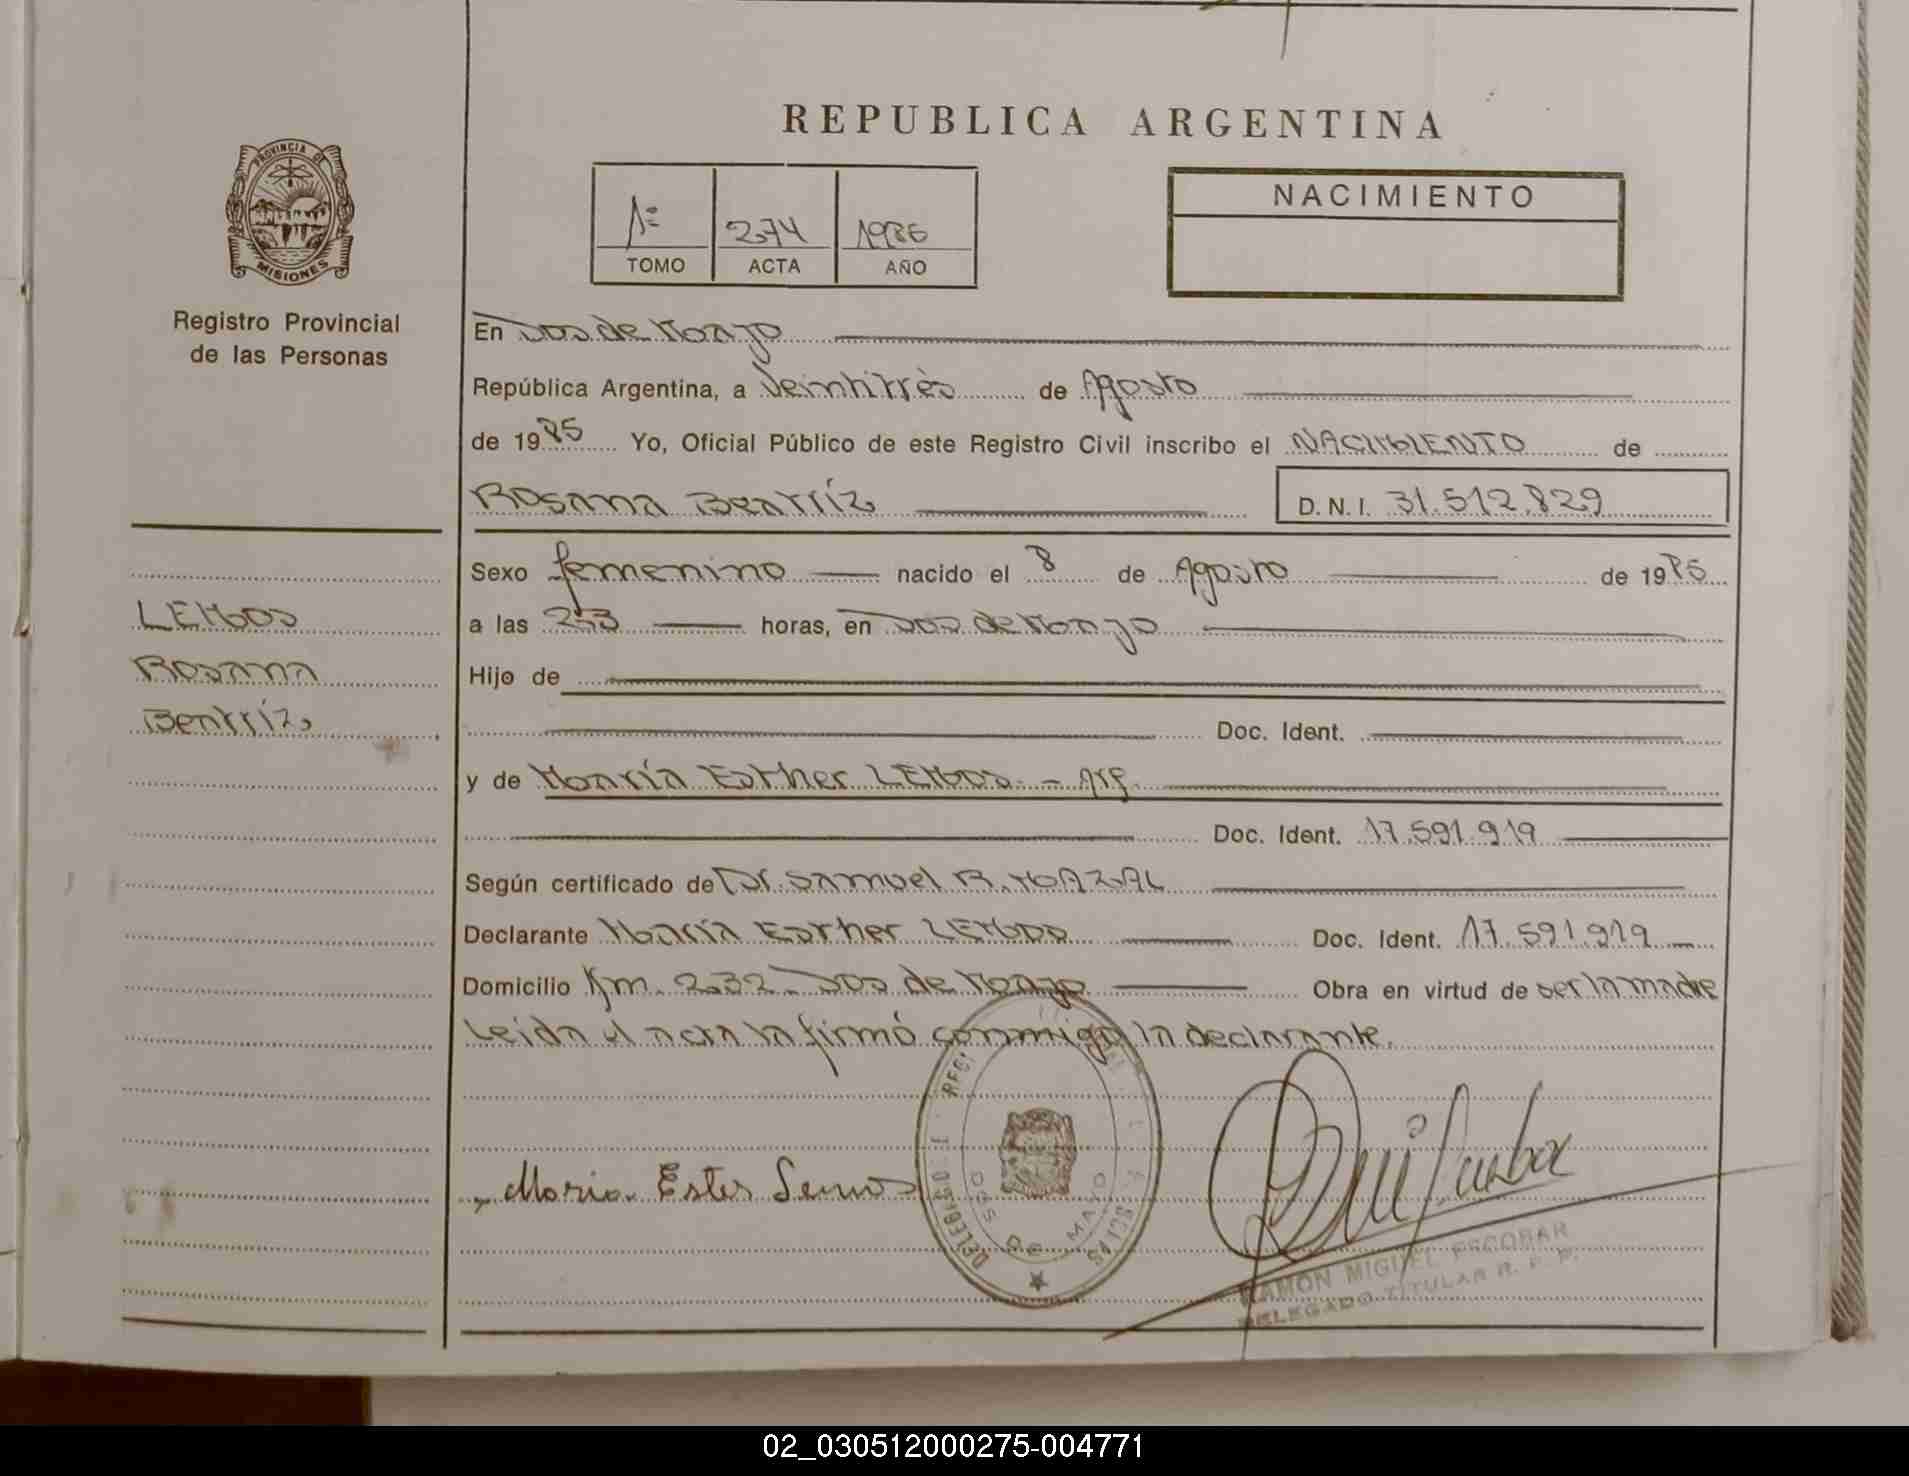 REPUBLICA ARGENTINA
PROVINCIA DE
MISIONES
1º 274 1986
TOMO ACTA AÑO
NACIMIENTO
Registro Provincial
de las Personas
En Dos de Mayo
República Argentina, a Veintitrès de Agosto
de 1985 Yo, Oficial Público de este Registro Civil inscribo el NACIMIENTO de
ROSANA BEATRÍZ D.N.I. 31.512.829
Sexo femenino nacido el 8 de Agosto de 1985
a las 23 horas, en Dos de Mayo
Hijo de
Doc. Ident.
y de María Esther LEMOS - Arg.
Doc. Ident. 17.591.919
Según certificado de Dr. Samuel R. MAZAL
Declarante María Esther LEMOS Doc. Ident. 17.591.919
Domicilio Km. 232 - Dos de Mayo Obra en virtud de ser la madre
Leida el acta la firmó conmigo la declarante.
LEMOS
Rosana
Beatríz
Maria Ester
DOS DE MAYO
RAMON MIGUEL ESCOBAR
DELEGADO TITULAR R. P. P.
02_030512000275-004771